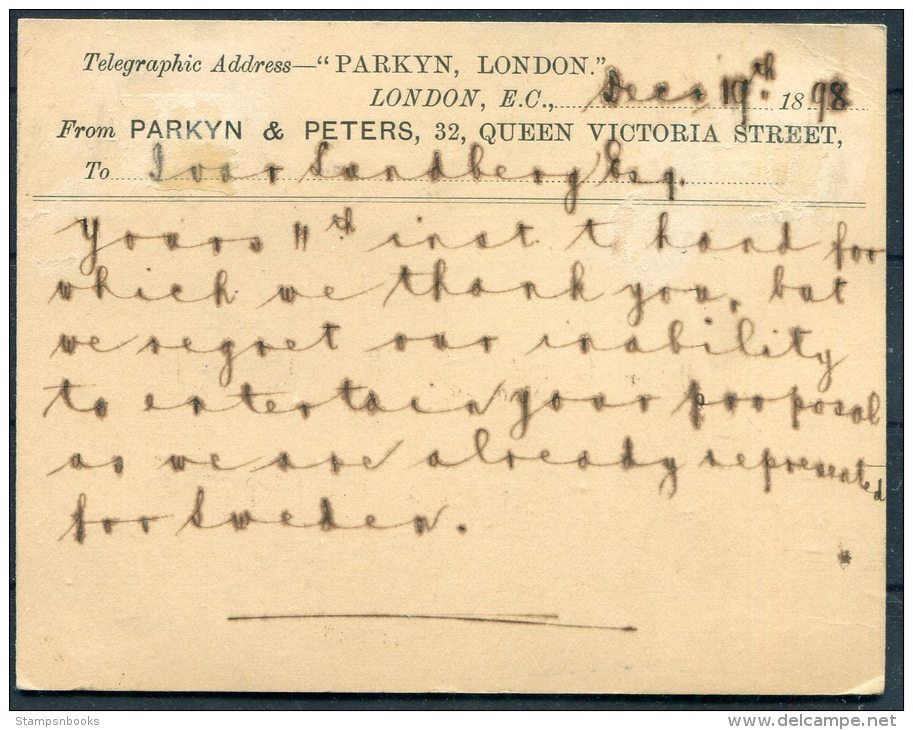 Telegraphic Address—“PARKYN, LONDON.”
LONDON, E.C., Decr 19th 1898
From PARKYN & PETERS, 32, QUEEN VICTORIA STREET,
To Ivar Sundberg Esq.
Yours 11th inst. to hand for
which we thank you, but
we regret our inability
to entertain your proposal
as we are already represented
for Sweden.
Stampsnbooks
delcampe.net